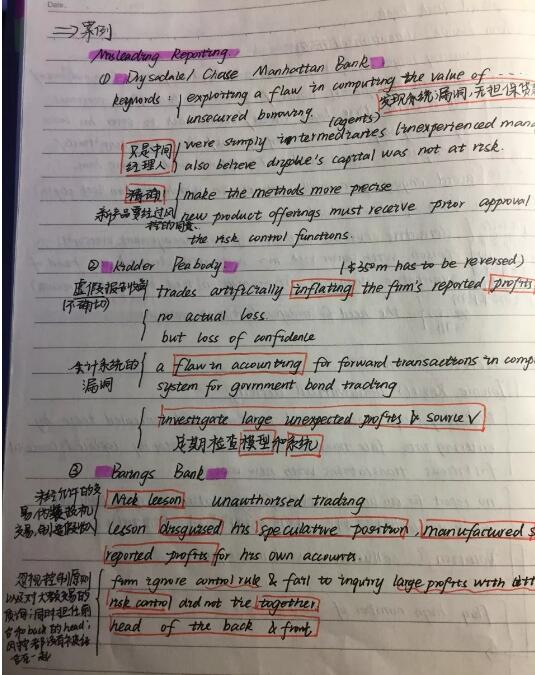 Date.
⇒ 案例
Misleading Reporting.
① Drysdale / Chase Manhattan Bank
keywords: exploiting a flaw in computing the value of ....
unsecured borrowing. 发现系统漏洞,无担保贷
(agents)
只是中间 were simply intermediaries (inexperienced man
经理人 also believe drysdale's capital was not at risk.
make the methods more precise
新产品要经过风 new product offerings must receive prior approval
控的同意. the risk control functions.
② Kidder Peabody ($350m has to be reversed)
虚假报告收益 trades artificially inflating the firm's reported profits
(不确切) no actual loss.
but loss of confidence
会计系统的 a flaw in accounting for forward transactions in comp
漏洞 system for government bond trading
investigate large unexpected profits & source √
定期检查模型和系统
③ Barings Bank
未经允许的交 Nick Leeson unauthorised trading
易,伪装投机 Leeson disguised his speculative position, manufactured
交易,制造假收入 reported profits for his own accounts.
忽视控制原则 firm ignore control rule & fail to inquiry large profits with
以及对大额交易的 risk control did not tie together
质询;同时担任前 head of the back & front
台和back的head;